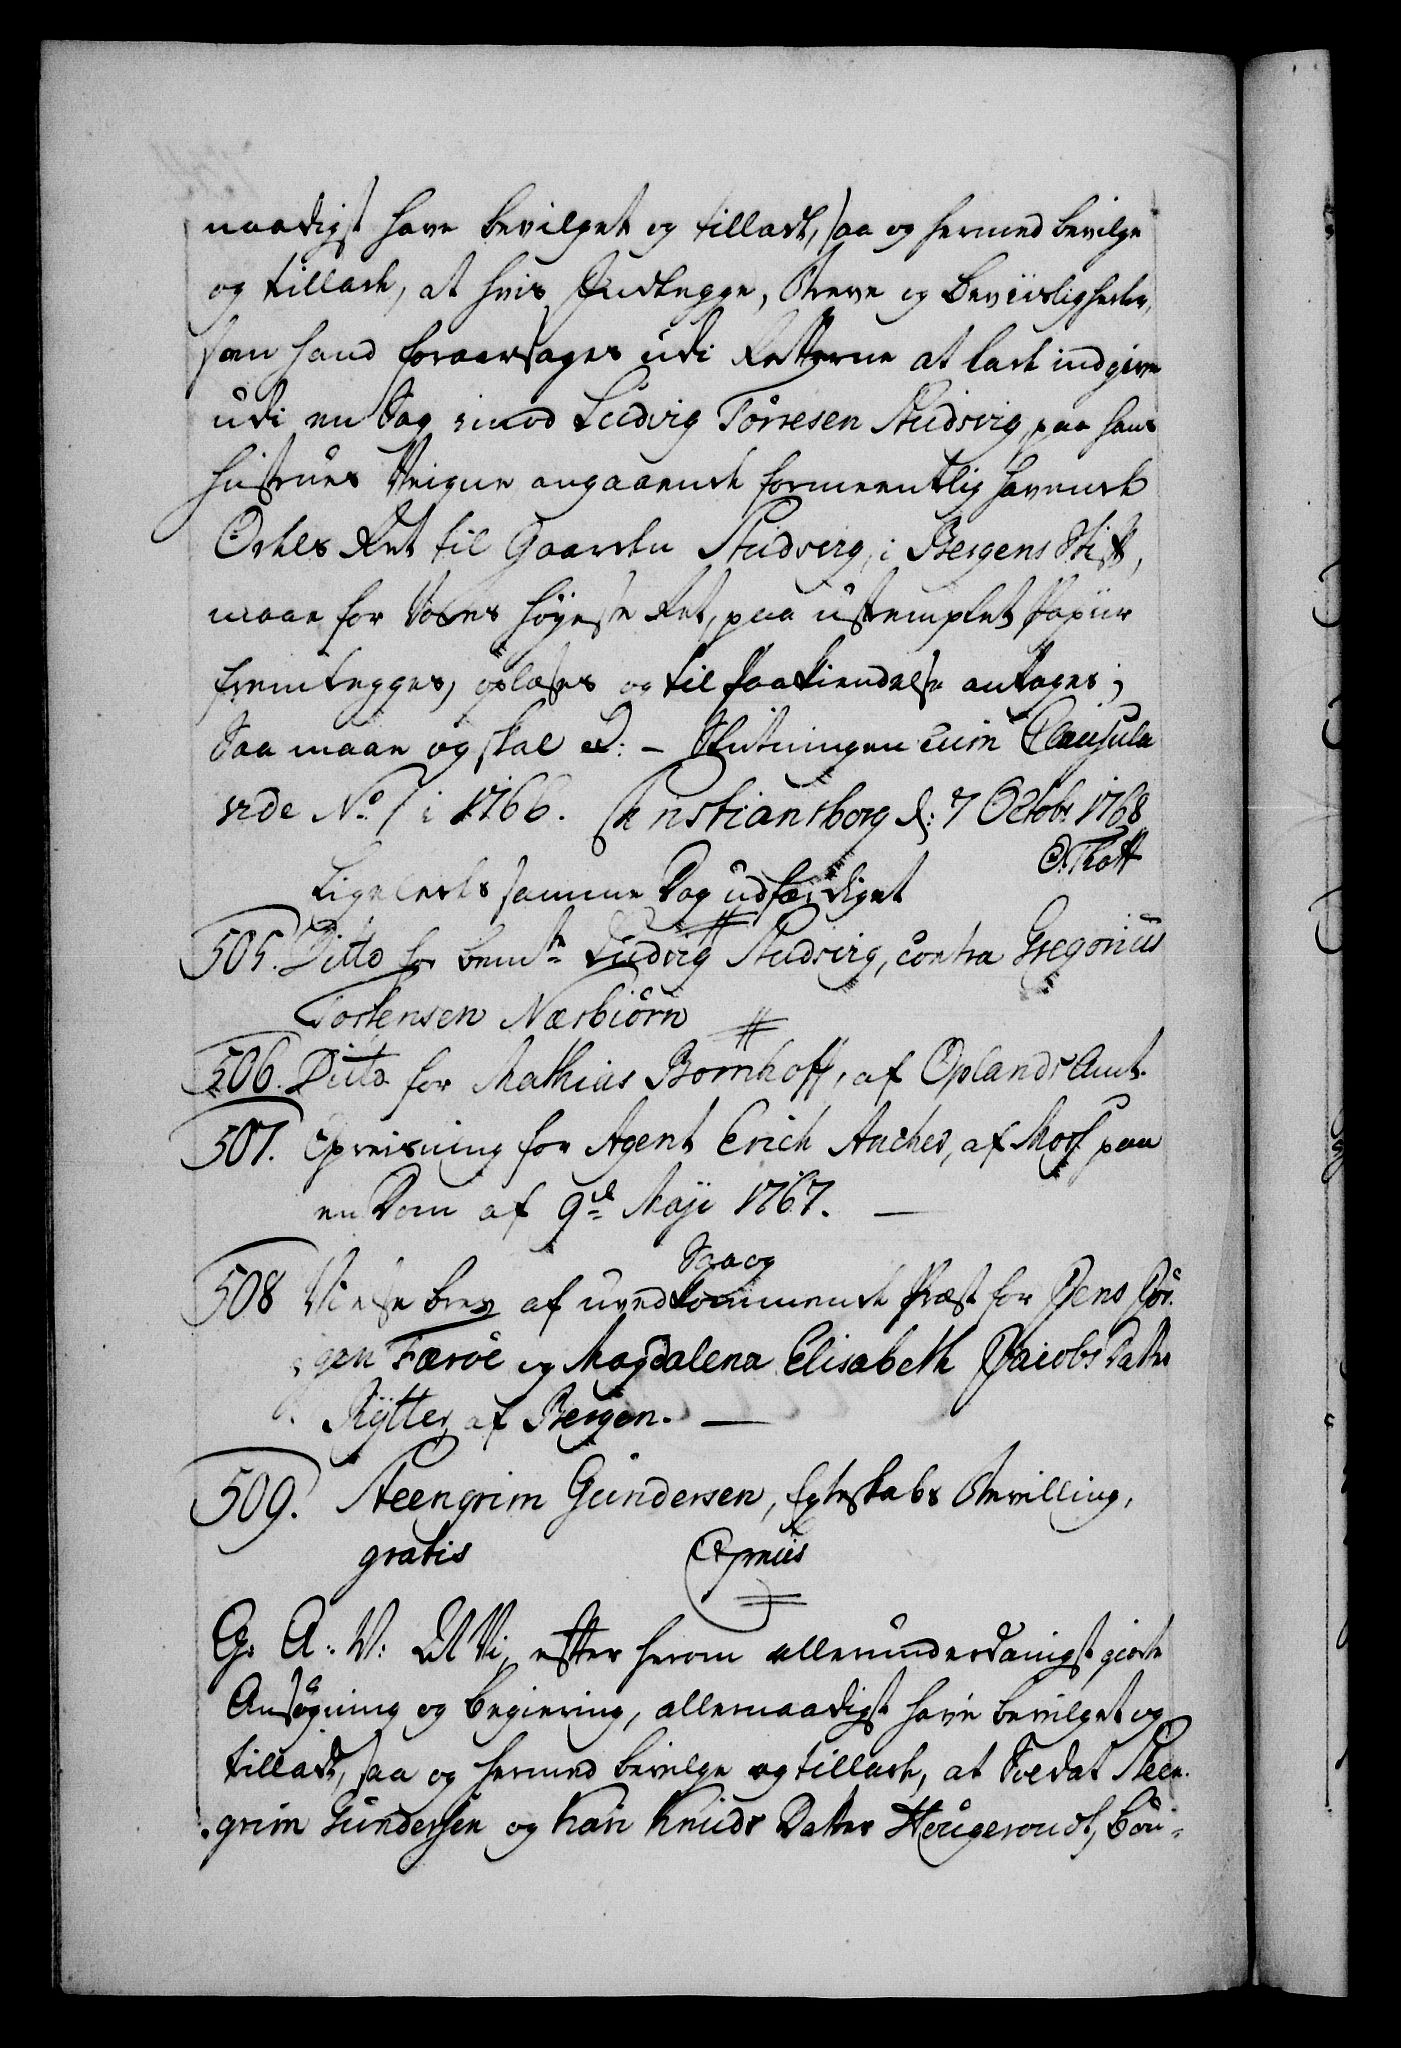 naadigst have bevilget og tilladt, saa og hermed bevilge
og tillade, at hvis Indlegge, Breve og Beviisligheder,
som hand foraarsages udi Retterne at lade indgive
udi en Sag imod Ludvig Torresen Studsvig, paa hans
Hustrues Veigne angaaende formeentlig havende
Odels Ret til Gaarden Studsvig, i Bergens Stift,
maae for Vores Høyeste Ret, paa ustemplet Papiir
fremlegges, oplæses og til Paakiendelse antages;
Saa maae og skal &: - Slutningen cum Clausula
vide No. 1 i 1766. Christiansborg d: 7 Octobr 1768
O. Thott
Ligeledes samme Dag udfærdiget
505. Ditto for bemte Ludvig Studsvig, contra Gregorius
Tostensen Næsbiørn
506. Ditto for Mathias Bornhoff, af Oplands Amt.
507. Opreisning for Agent Erich Ancher, af Moss paa
en Dom af 9de Maji 1767. —
Saa og
508 Vielse brev af uvedkommende Præst for Jens Jør-
gen Færøe og Magdalena Elisabeth Jacobs Datter
Rytter, af Bergen. —
509. Steengrim Gundersen, Egteskabs Bevilling,
gratis
G: A: V: At Vi, efter herom allerunderdanigst giorte
Ansøgning og Begiering, allernaadigst have bevilget og
tilladt, saa og hermed bevilge og tillade, at Soldat Steen-
grim Gundersen og Kari Knuds Datter Hougeroudt, Bou-